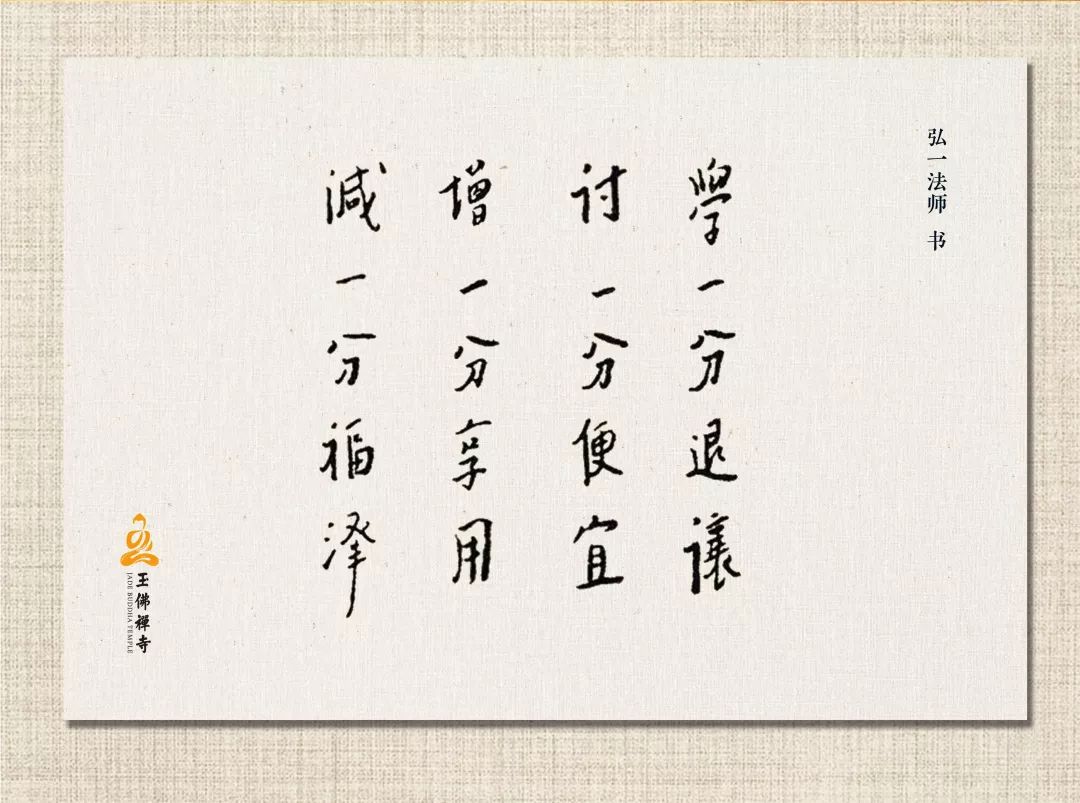 弘一法师 书
學一分退讓
討一分便宜
增一分享用
減一分福澤
玉佛禅寺
JADE BUDDHA TEMPLE